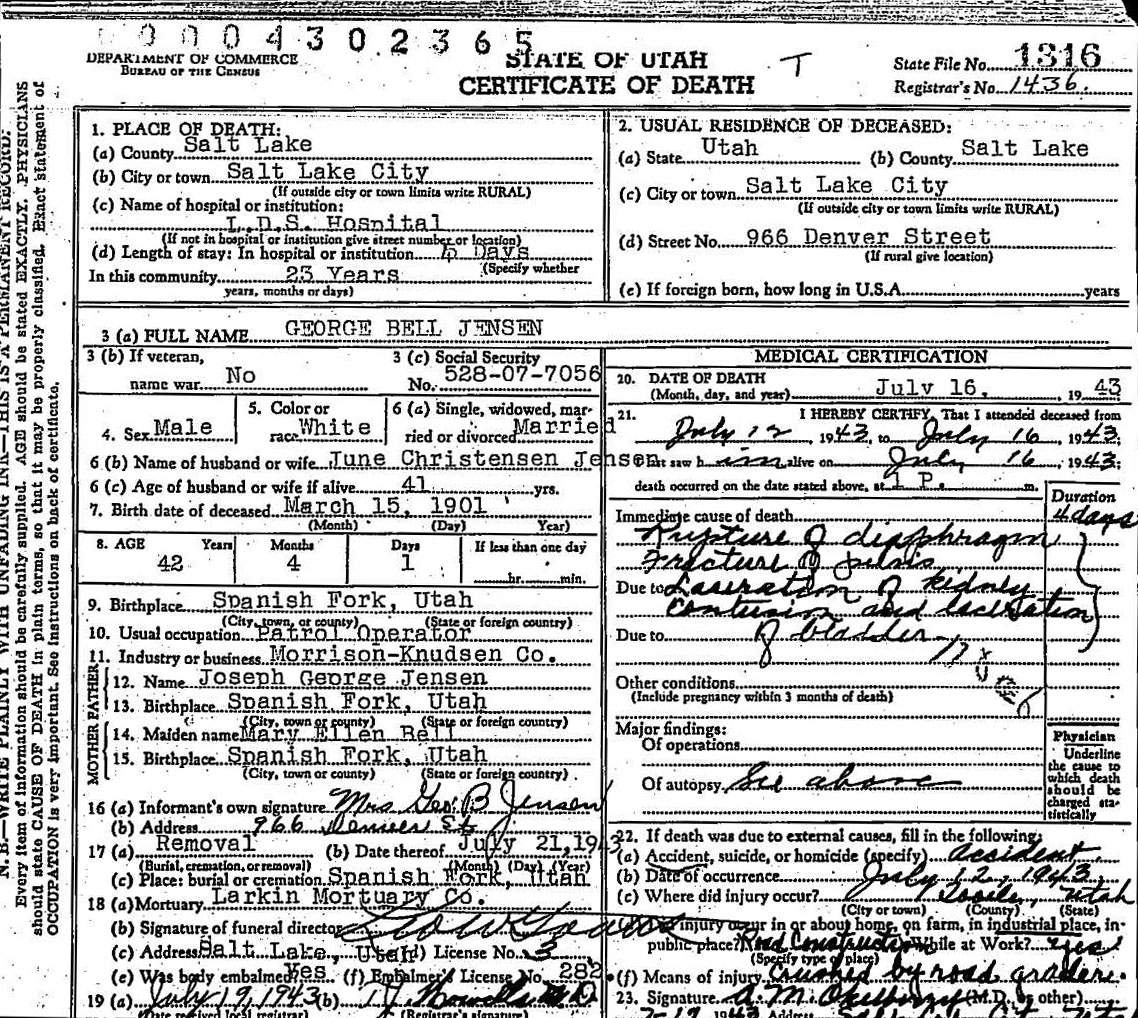 0 0 0 4 3 0 2 3 6 5
DEPARTMENT OF COMMERCE
BUREAU OF THE CENSUS
STATE OF UTAH
CERTIFICATE OF DEATH
T
State File No. 1316
Registrar's No. 1436.
N. B.—WRITE PLAINLY WITH UNFADING INK—THIS IS A PERMANENT RECORD.
Every item of information should be carefully supplied. AGE should be stated EXACTLY. PHYSICIANS
should state CAUSE OF DEATH in plain terms, so that it may be properly classified. Exact statement of
OCCUPATION is very important. See instructions on back of certificate.
1. PLACE OF DEATH:
(a) County Salt Lake
(b) City or town Salt Lake City
(If outside city or town limits write RURAL)
(c) Name of hospital or institution:
L.D.S. Hospital
(If not in hospital or institution give street number or location)
(d) Length of stay: In hospital or institution Days
(Specify whether
In this community 23 Years
years, months or days)
2. USUAL RESIDENCE OF DECEASED:
(a) State Utah (b) County Salt Lake
(c) City or town Salt Lake City
(If outside city or town limits write RURAL)
(d) Street No. 966 Denver Street
(If rural give location)
(e) If foreign born, how long in U.S.A. years
3 (a) FULL NAME GEORGE BELL JENSEN
3 (b) If veteran,
name war No
3 (c) Social Security
No. 528-07-7056
4. Sex Male
5. Color or
race White
6 (a) Single, widowed, mar-
ried or divorced Married
6 (b) Name of husband or wife June Christensen Jensen
6 (c) Age of husband or wife if alive 41 yrs.
7. Birth date of deceased March 15, 1901
(Month) (Day) Year)
8. AGE Years Months Days If less than one day
42 4 1 hr. min.
9. Birthplace Spanish Fork, Utah
(City, town, or county) (State or foreign country)
10. Usual occupation Patrol Operator
11. Industry or business Morrison-Knudsen Co.
FATHER
12. Name Joseph George Jensen
13. Birthplace Spanish Fork, Utah
(City, town or county) (State or foreign country)
MOTHER
14. Maiden name Mary Ellen Bell
15. Birthplace Spanish Fork, Utah
(City, town or county) (State or foreign country)
16 (a) Informant's own signature Mrs Geo. B Jensen
(b) Address 966 Denver St
17 (a) Removal (b) Date thereof July 21, 1943
(Burial, cremation, or removal) (Month) (Day) (Year)
(c) Place: burial or cremation Spanish Fork, Utah
18 (a) Mortuary Larkin Mortuary Co.
(b) Signature of funeral director
(c) Address Salt Lake, Utah (d) License No. 3
(e) Was body embalmed Yes (f) Embalmer's License No. 282
19 (a) July 19, 1943 (b) M.D.
(Date received local registrar) (Registrar's signature)
MEDICAL CERTIFICATION
20. DATE OF DEATH
(Month, day, and year) July 16, 1943
21. I HEREBY CERTIFY, That I attended deceased from
July 12 1943, to July 16 1943;
I last saw him alive on July 16, 1943;
death occurred on the date stated above, at 1 P. m.
Duration
Immediate cause of death 4 days
Rupture of diaphragm
Fracture of pelvis
Due to Laceration of kidney
Contusion and laceration
Due to of bladder
Other conditions
(Include pregnancy within 3 months of death)
Major findings:
Of operations
Of autopsy See above
Physician
Underline
the cause to
which death
should be
charged sta-
tistically
22. If death was due to external causes, fill in the following:
(a) Accident, suicide, or homicide (specify) accident
(b) Date of occurrence July 12, 1943
(c) Where did injury occur? Tooele, Utah
(City or town) (County) (State)
injury occur in or about home, on farm, in industrial place, in
public place? Road Construction While at Work? yes
(Specify type of place)
(f) Means of injury crushed by road grader.
23. Signature A. M. (M.D. or other)
1943 Address Salt Lake City Utah